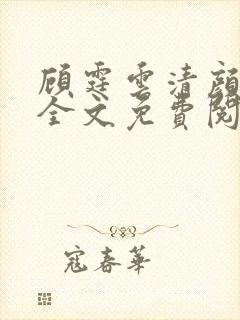 顾霆雲清颜
全文免費閱
寇春華